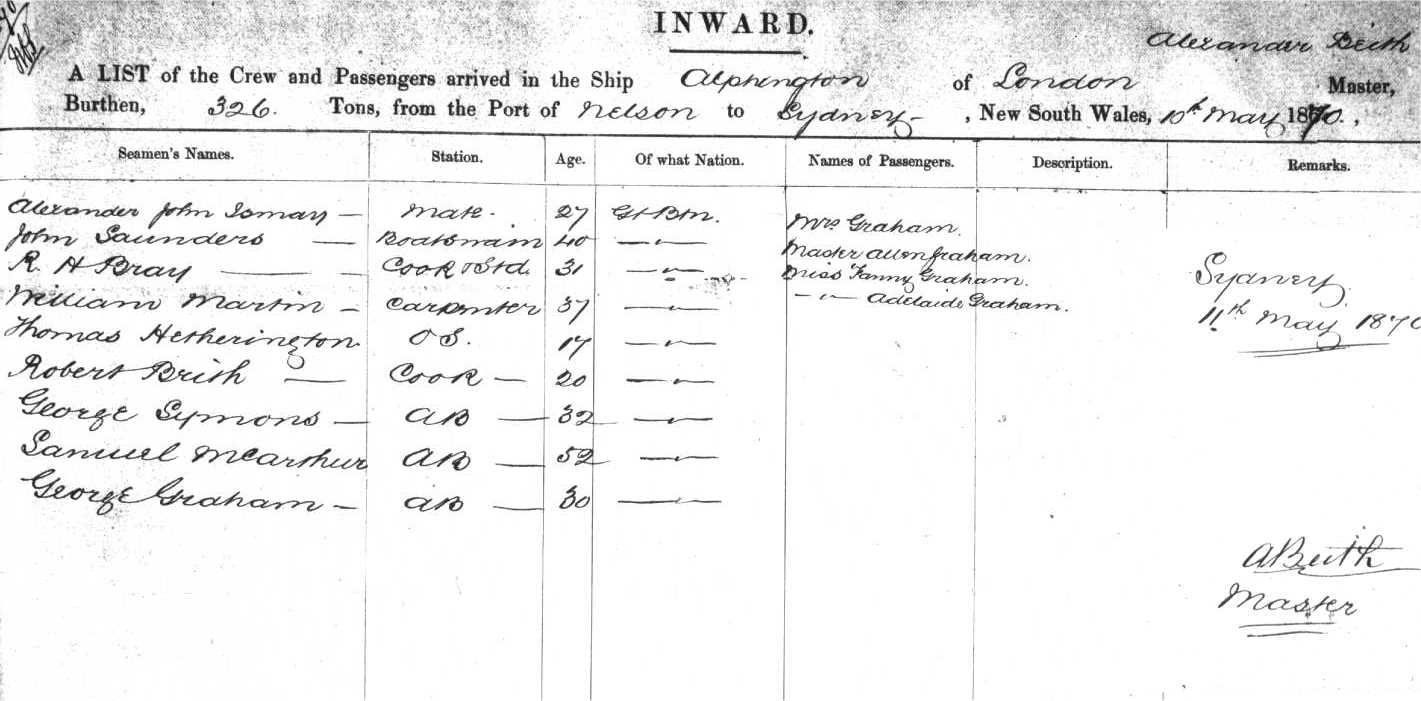 INWARD.
Alexander Beith
A LIST of the Crew and Passengers arrived in the Ship Alphington of London Master,
Burthen, 326. Tons, from the Port of Nelson to Sydney - , New South Wales, 10th May 1870. ,
Seamen's Names. Station. Age. Of what Nation. Names of Passengers. Description. Remarks.
Alexander John Ismay - Mate. 27 Gt Btn. Mrs Graham.
John Saunders — Boatswain 40 —〃— Master Allen Graham.
R. H Bray — Cook & Std. 31 —〃— Miss Fanny Graham. Sydney.
William Martin - Carpenter 37 —〃— —〃— Adelaide Graham. 11th May 1870
Thomas Hetherington. O S. 17 —〃—
Robert Brish — Cook — 20 —〃—
George Symons — AB — 32 —〃—
Samuel McArthur AB — 52 —〃—
George Graham — AB — 30 —〃—
ABeith
Master